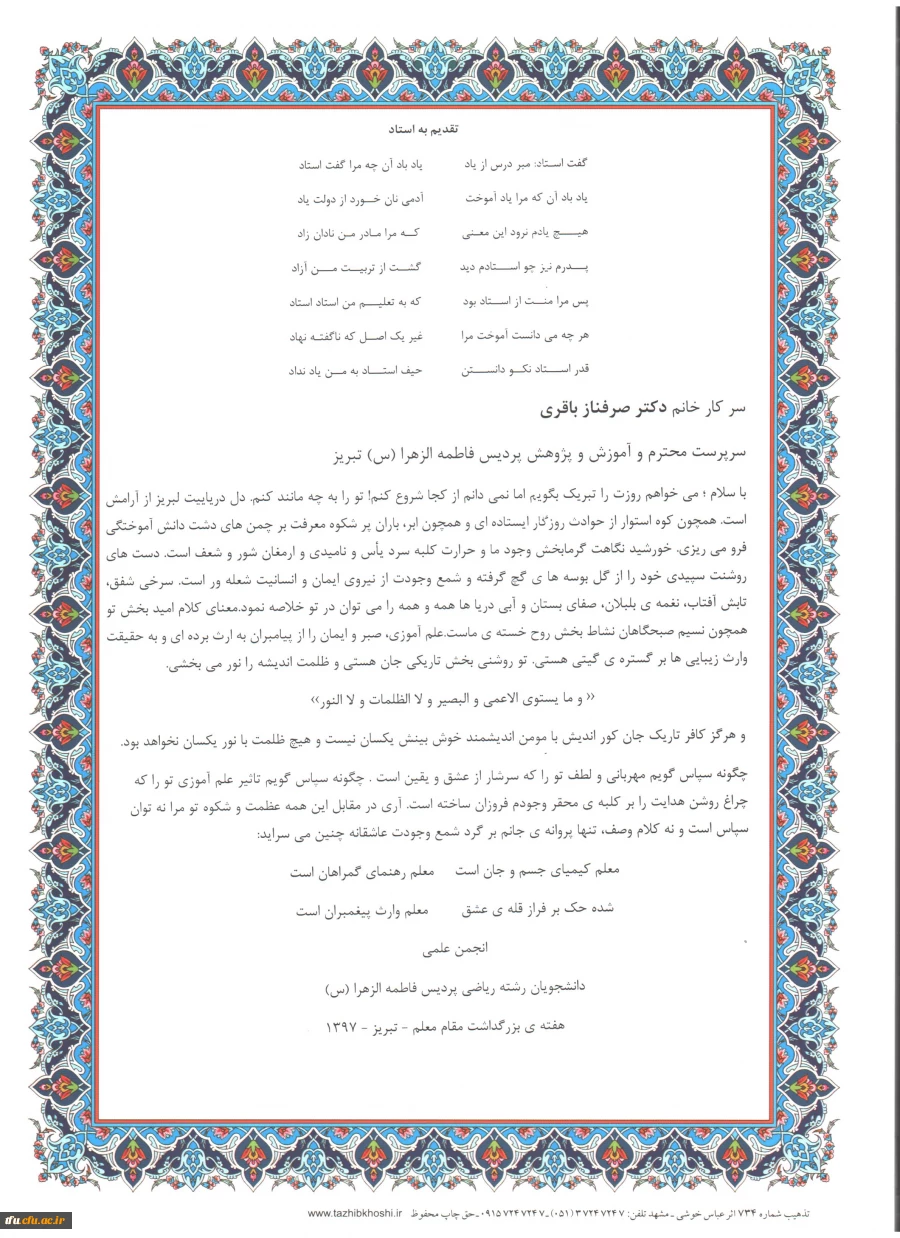 تقدیم به استاد
گفت استاد: مبر درس از یاد یاد باد آن چه مرا گفت استاد
یاد باد آن که مرا یاد آموخت آدمی نان خورد از دولت یاد
هیچ یادم نرود این معنی که مرا مادر من نادان زاد
پدرم نیز چو استادم دید گشت از تربیت من آزاد
پس مرا منت از استاد بود که به تعلیم من استاد استاد
هر چه می دانست آموخت مرا غیر یک اصل که ناگفته نهاد
قدر استاد نکو دانستن حیف استاد به من یاد نداد
سر کار خانم دکتر صرفناز باقری
سرپرست محترم و آموزش و پژوهش پردیس فاطمه الزهرا (س) تبریز
با سلام ؛ می خواهم روزت را تبریک بگویم اما نمی دانم از کجا شروع کنم! تو را به چه مانند کنم. دل دریاییت لبریز از آرامش
است. همچون کوه استوار از حوادث روزگار ایستاده ای و همچون ابر، باران پر شکوه معرفت بر چمن های دشت دانش آموختگی
فرو می ریزی. خورشید نگاهت گرمابخش وجود ما و حرارت کلبه سرد یأس و نامیدی و ارمغان شور و شعف است. دست های
روشنت سپیدی خود را از گل بوسه ها ی گچ گرفته و شمع وجودت از نیروی ایمان و انسانیت شعله ور است. سرخی شفق،
تابش آفتاب، نغمه ی بلبلان، صفای بستان و آبی دریا ها همه و همه را می توان در تو خلاصه نمود.معنای کلام امید بخش تو
همچون نسیم صبحگاهان نشاط بخش روح خسته ی ماست.علم آموزی، صبر و ایمان را از پیامبران به ارث برده ای و به حقیقت
وارث زیبایی ها بر گستره ی گیتی هستی. تو روشنی بخش تاریکی جان هستی و ظلمت اندیشه را نور می بخشی.
‹‹ و ما یستوی الاعمی و البصیر و لا الظلمات و لا النور››
و هرگز کافر تاریک جان کور اندیش با مومن اندیشمند خوش بینش یکسان نیست و هیچ ظلمت با نور یکسان نخواهد بود.
چگونه سپاس گویم مهربانی و لطف تو را که سرشار از عشق و یقین است . چگونه سپاس گویم تاثیر علم آموزی تو را که
چراغ روشن هدایت را بر کلبه ی محقر وجودم فروزان ساخته است. آری در مقابل این همه عظمت و شکوه تو مرا نه توان
سپاس است و نه کلام وصف، تنها پروانه ی جانم بر گرد شمع وجودت عاشقانه چنین می سراید:
معلم کیمیای جسم و جان است معلم رهنمای گمراهان است
شده حک بر فراز قله ی عشق معلم وارث پیغمبران است
انجمن علمی
دانشجویان رشته ریاضی پردیس فاطمه الزهرا (س)
هفته ی بزرگداشت مقام معلم - تبریز - ۱۳۹۷
تذهیب شماره ۷۳۴ اثر عباس خوشی ـ مشهد تلفن: ۳۷۲۴۷۲۴۷ (۰۵۱) ـ ۰۹۱۵۷۲۴۷۲۴۷ ـ حق چاپ محفوظ www.tazhibkhoshi.ir
tfu.cfu.ac.ir